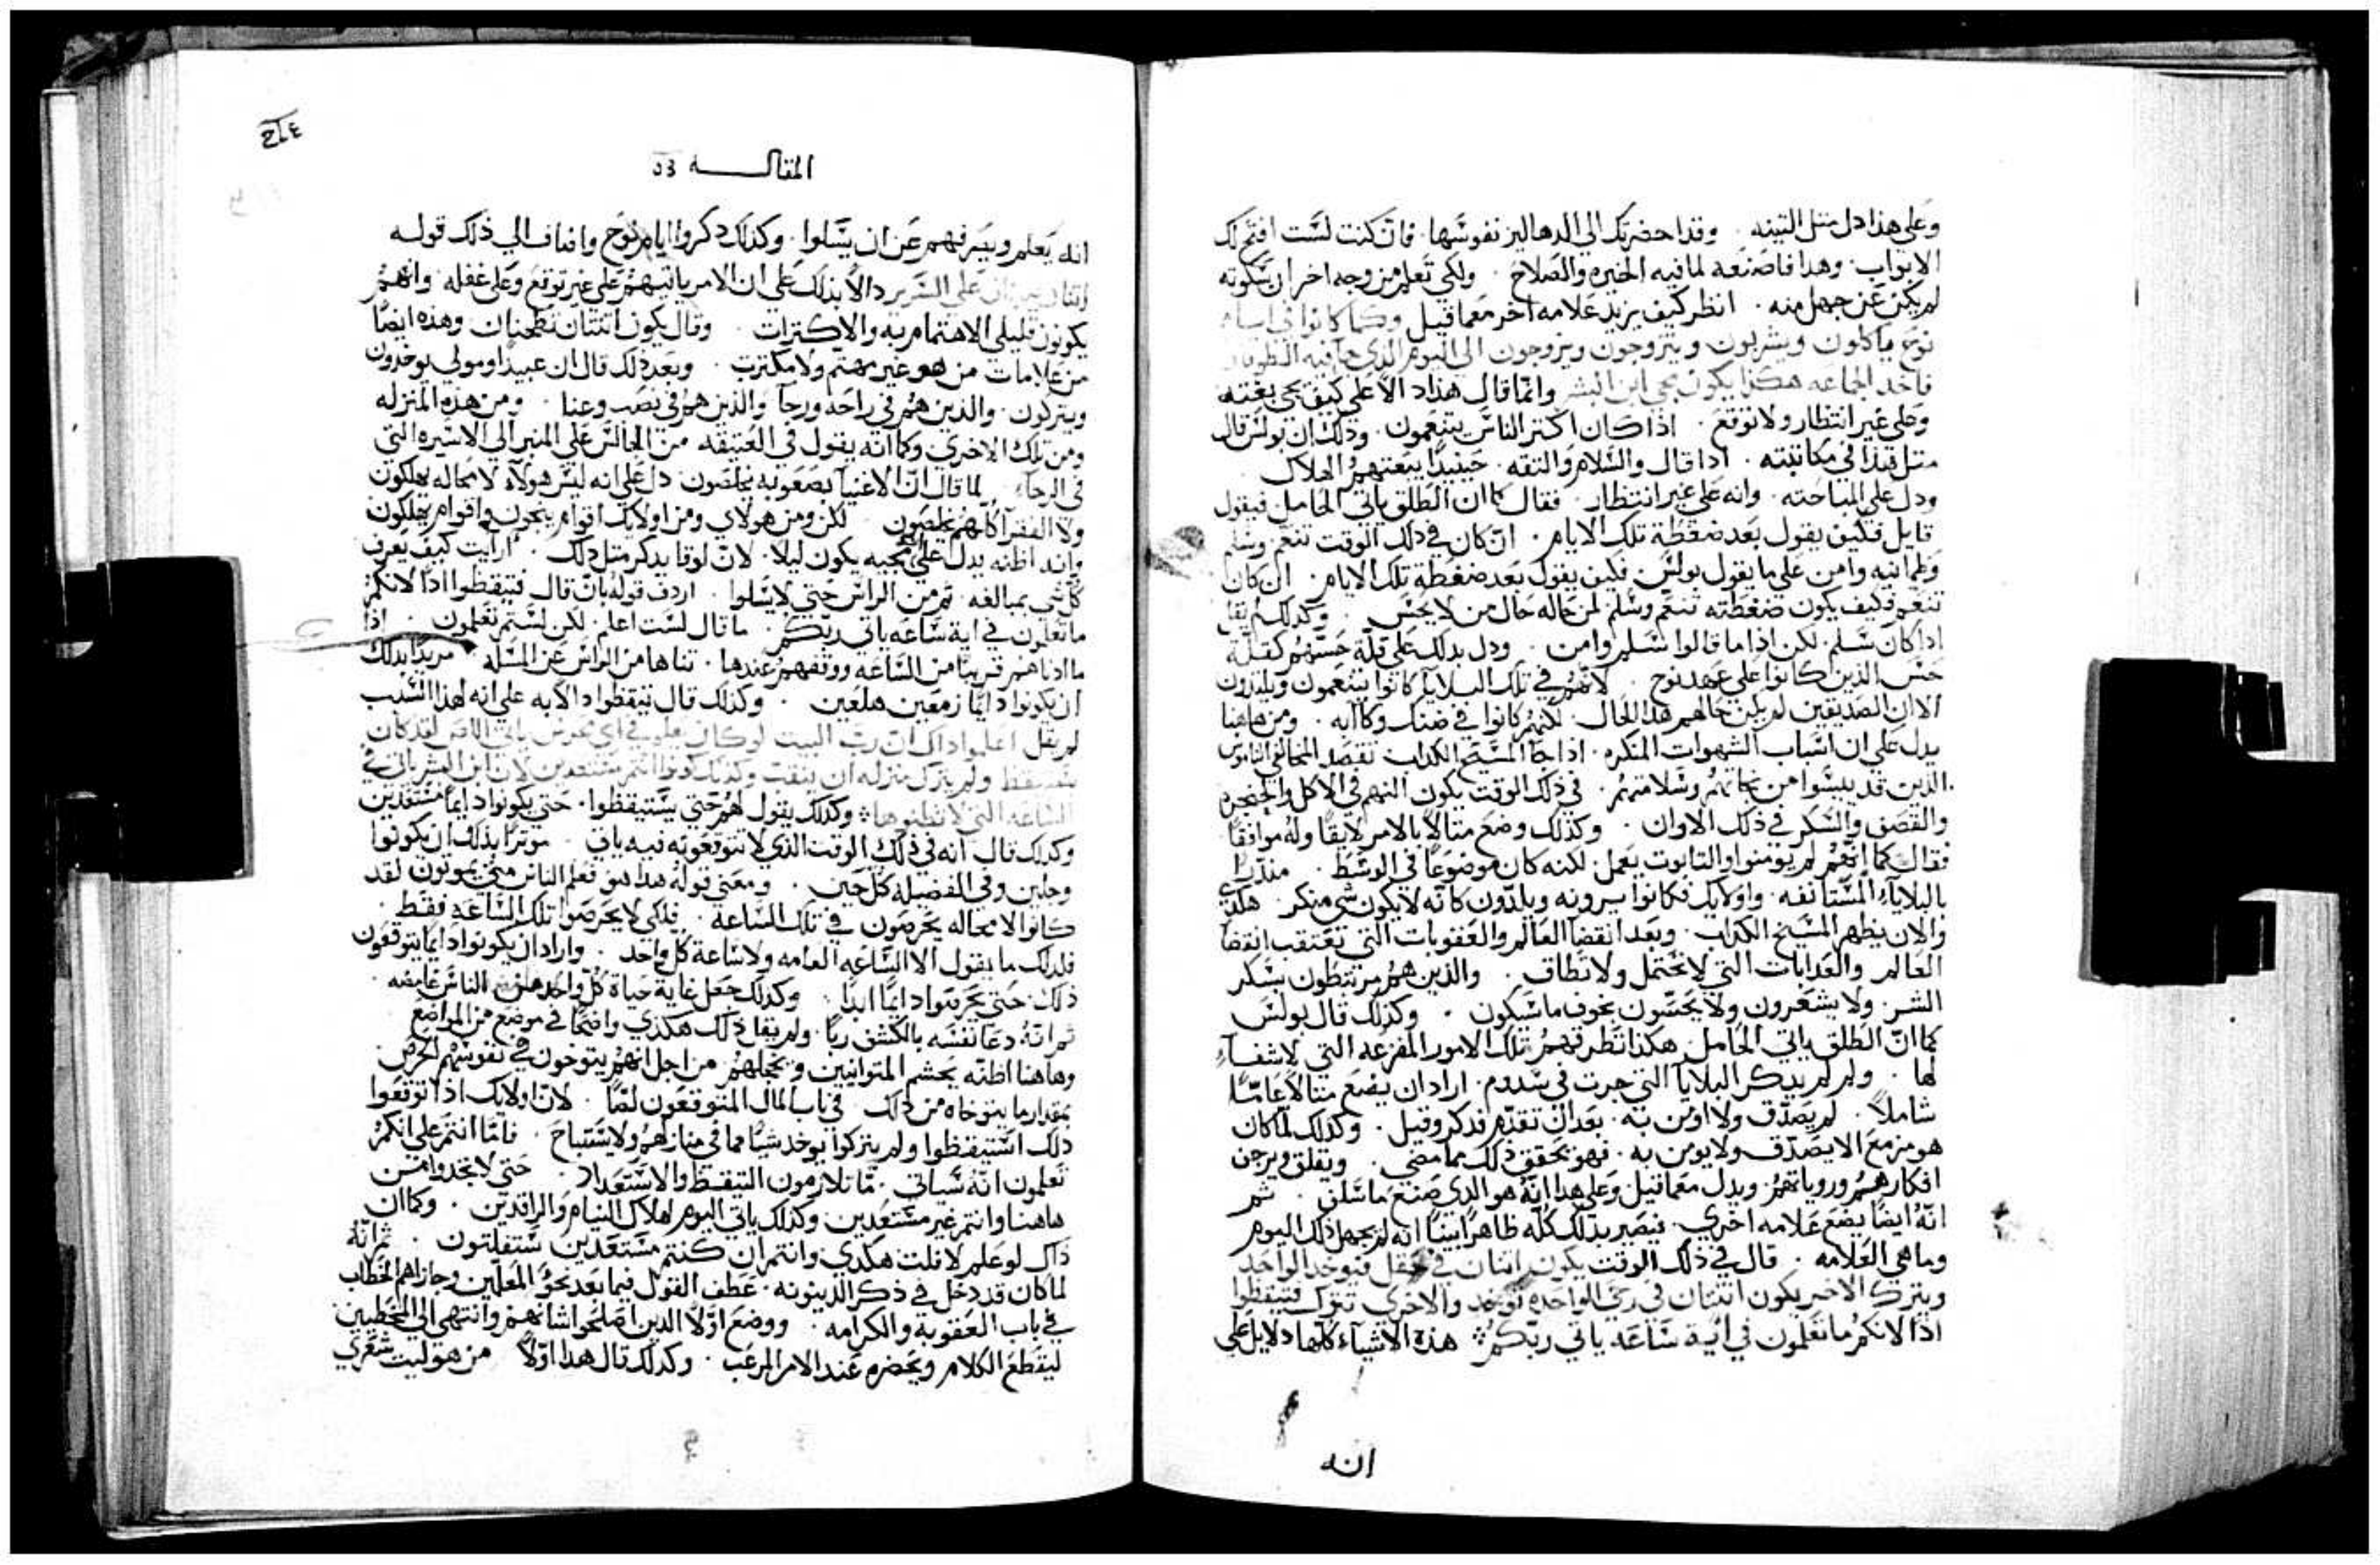 وعلي هذا دل مثل التينه . وقد احضرتك الي الدهاليز نفوسها . فان كنت لست افتح لك
الابواب . وهدا فاصنعه لما فيه الخيره والصلاح . ولكي تعلم من وجه اخر ان سكوته
لم يكن عن جهل منه . انظر كيف يزيد علامه اخر مع ما قيل وكما كانوا في ايام
نوح ياكلون ويشربون ويتزوجون ويزوجون الي اليوم الذي جا فيه الطوفان
فاخد الجماعه هكذا يكون مجي ابن البشر وانما قال هذا دالا علي كيف يجي بغته
وعلي غير انتظار ولا توقع . اذا كان اكتر الناس يتنعمون . وذلك ان بولس قال
متل هذا في مكاتبته . اذا قال والسلام والتقه . حينيدا يبغتهم الهلاك
ودل علي المباحته . وانه علي غير انتظار . فقال كما ان الطلق ياتي الحامل فيقول
قايل فكيف يقول بعد ضغطة تلك الايام . ان كان في ذلك الوقت تنعم وسلم
وطمانيه وامن علي ما يقول بولس . فكيف يقول بعد ضغطة تلك الايام . ان كان
تنعم فكيف يكون ضغطته تنعم وسلم لمن حاله حال من لا يحس . وكدلك لم يقل
اذا كان سلم . لكن اذا ما قالوا سلم وامن . ودل بدلك علي قلة حسهم كقلة
حس الذين كانوا علي عهد نوح . لانهم في تلك البلايا كانوا يتنعمون ويلذون
الا ان الصديقين لم يكن حالهم هذا الحال . لكنهم كانوا في ضنك وكاابه . ومن هاهنا
يدل علي ان اسباب الشهوات المنكره . اذا جا المسيح الكداب تقصد المخالفي الناموس
الذين قد ييسوا من نجاتهم وسلامتهم . في ذلك الوقت يكون النهم في الاكل والحنجره
والقصف والسكر في ذلك الاوان . وكذلك وضع متالا بالامر لايقا وله موافقا
فقال كما انهم لم يومنوا والتابوت يعمل . لكنه كان موضوعا في الوسط . منذرا
بالبلاياء المستانفه . واولايك فكانوا يرونه ويلذون كانه لا يكون شي منكر . هكدي
والان يظهر المسيح الكداب . وبعد انقضا العالم والعقوبات التي تعتقب انقضا
العالم والعدابات التي لا تحتمل ولا تطاق . والذين هم مرتبطون بسكر
الشر ولا يشعرون ولا يحسون بخوف ما سيكون . وكذلك قال بولس
كما ان الطلق ياتي الحامل . هكذا تطرقهم تلك الامور المفزعه التي لا شفاء
لها . ولم لم يدكر البلايا التي جرت في سدوم . اراد ان يضع متالا عاما
شاملا . لم يصدق ولا اومن به . بعد ان تقدم فدكر وقيل . وكدلك لما كان
هو مزمع الا يصدق ولا يومن به . فهو يحقق ذلك مما مضي . ويقلق ويرجف
افكارهم وروياتهم ويدل مع ما قيل وعلي هدا انه هو الذي صنع ما سلف . ثم
انه ايضا يضع علامه اخري . فيصير بدلك كله ظاهرا بينا انه لم يجهل ذلك اليوم
وما هي العلامه . قال في ذلك الوقت يكون اثنان في حقل فيوخد الواحد
ويترك الاخر يكون اثنتان في رحي الواحده توخد والاخري تترك فتيقظوا
اذا لانكم ما تعلمون في اية ساعه ياتي ربكم هذه الاشياء كلها دلايل علي
انه
المقاله
انه يعلم ويصرفهم عن ان يسلوا . وكدلك دكروا ايام نوح واضاف الي ذلك قوله
علي السرير دالا بذلك علي ان الامر ياتيهم علي غير توقع وعلي غفله وانهم
يكونون قليلي الاهتمام به والاكترات . وقال يكون اتنتان تطحنان وهذه ايضا
من علامات من هو غير مهتم ولا مكترت . وبعد ذلك قال ان عبيدا ومولي يوخدون
ويتركون . والذين هم في راحه ورجا والذين هم في نصب وعنا . ومن هذه المنزله
ومن تلك الاخري وكما انه يقول في العتيقه من الجالس علي المنبر الي الاسيره التي
في الرحاء لما قال ان الاغنيا بصعوبه يخلصون دل علي انه ليس هولاء لا محاله يهلكون
ولا الفقرا كلهم يخلصون لكن ومن هولاي ومن اولايك اقوام ينجون واقوام يهلكون
وانه اظنه يدل علي مجيه يكون ليلا . لان لوقا يدكر متل ذلك . ارايت كيف يعرف
كل شي بمبالغه . ثم من الراس حتي لا يسلوا . اردف قوله بان قال فتيقظوا ادا لانكم
ما تعلمون في اية ساعه ياتي ربكم . ما قال لست اعلم . لكن لستم تعلمون . اذا
ما ادناهم قريبا من الساعه ووقفهم عندها . تناها من الراس عن المسله مريدا بدلك
ان يكونوا دايما زمعين هلعين . وكذلك قال تيقظوا دالا به علي انه لهذا السبب
لم يقل اعلموا داك ان رب البيت لو كان يعلم في اي محرس ياتي اللص لقد كان
يتيقظ ولم يترك منزله ان ينقب وكذلك كونوا انتم مستعدين لان ابن البشر ياتي في
الساعه التي لا تظنوها وكدلك يقول لهم حتي يستيقظوا . حتي يكونوا دايما مستعدين
وكدلك قال انه في ذلك الوقت الذي لا تتوقعونه فيه ياتي . موترا بذلك ان يكونوا
وجلين وفي الفضيله كل حين . ومعني قوله هدا هو فعلم الناس متي يموتون لقد
كانوا لا محاله يحرصون في تلك الساعه . فلكي لا يحرصوا تلك الساعه فقط .
فلدلك ما يقول الا الساعه العامه ولا ساعة كل واحد . واراد ان يكونوا دايما يتوقعون
ذلك حتي يحرصوا دايما ابدا . وكدلك جعل غاية حياة كل واحد من الناس غامضه .
ثم انه دعا نفسه بالكشف ربا . ولم يقل ذلك هكذي واضحا في موضع من المواضع
وهاهنا اظنه يحشم المتوانيين ويخجلهم من اجل انهم يتوخون في نفوسهم الحرص
بمقدار ما يتوخاه من ذلك في باب المال المتوقعون لصا . لان اولايك اذا توقعوا
ذلك استيقظوا ولم يتركوا يوخد شيا مما في منازلهم ولا يستباح . فاما انتم علي انكم
تعلمون انه سياتي . ما تلازمون التيقظ والاستعداد . حتي لا تخدوا من
هاهنا وانتم غير مستعدين وكذلك ياتي اليوم لهلاك النيام والراقدين . وكما ان
ذاك لو علم لافلت هكدي وانتم ان كنتم مستعدين ستفلتون . ثم انه
لما كان قد دخل في ذكر الدينونه . عطف القول فيما بعد نحو المعلمين وجازاهم الخطاب
في باب العقوبة والكرامه . ووضع اولا الدين اصلحوا شانهم وانتهي الي المخطيين
ليقطع الكلام ويحضره عند الامر المرعب . وكدلك قال هذا اولا من هو ليت شعري